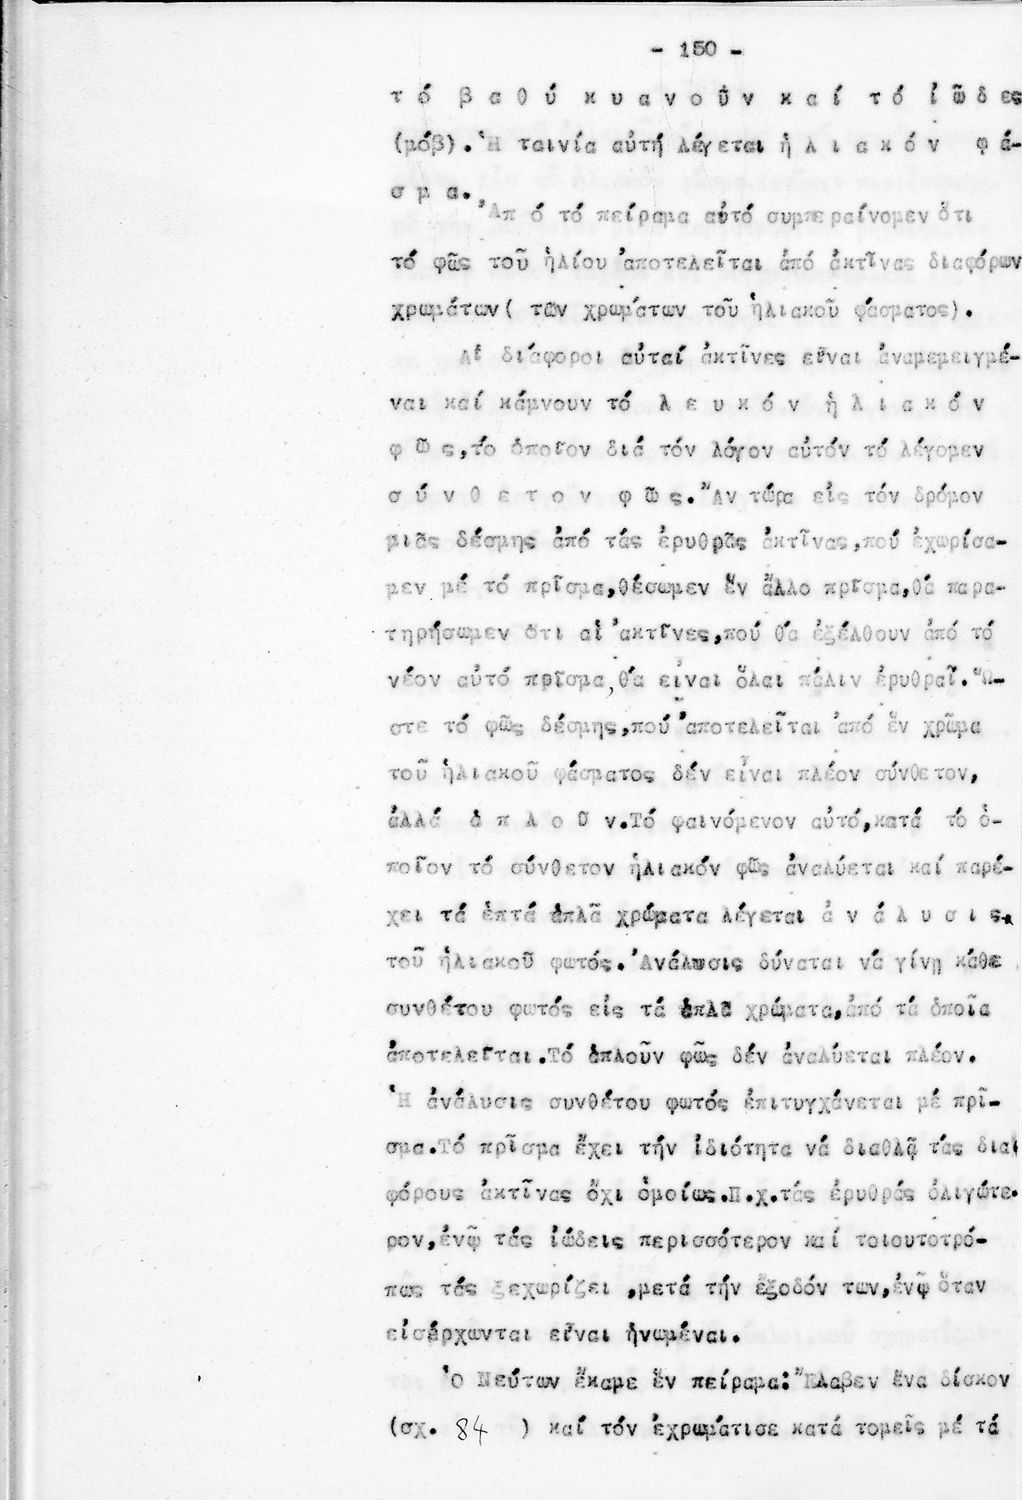 - 150 -
τό βαθύ κυανοῦν καί τό ἰῶδες
(μόβ). Ἡ ταινία αὐτή λέγεται ἡλιακόν φά-
σμα.
Ἀπό τό πείραμα αὐτό συμπεραίνομεν ὅτι
τό φῶς τοῦ ἡλίου ἀποτελεῖται ἀπό ἀκτῖνας διαφόρων
χρωμάτων( τῶν χρωμάτων τοῦ ἡλιακοῦ φάσματος).
Αἱ διάφοροι αὐταί ἀκτῖνες εἶναι ἀναμεμειγμέ-
ναι καί κάμνουν τό λευκόν ἡλιακόν
φῶς,τό ὁποῖον διά τόν λόγον αὐτόν τό λέγομεν
σύνθετον φῶς. Ἄν τώρα εἰς τόν δρόμον
μιᾶς δέσμης ἀπό τάς ἐρυθρᾶς ἀκτῖνας,πού ἐχωρίσα-
μεν μέ τό πρῖσμα,θέσωμεν ἕν ἄλλο πρῖσμα,θά παρα-
τηρήσωμεν ὅτι αἱ ἀκτῖνες,πού θά ἐξέλθουν ἀπό τό
νέον αὐτό πρῖσμα,θά εἶναι ὅλαι πάλιν ἐρυθραῖ. Ὥ-
στε τό φῶς δέσμης,πού ἀποτελεῖται ἀπό ἕν χρῶμα
τοῦ ἡλιακοῦ φάσματος δέν εἶναι πλέον σύνθετον,
ἀλλά ἁπλοῦν.Τό φαινόμενον αὐτό,κατά τό ὁ-
ποῖον τό σύνθετον ἡλιακόν φῶς ἀναλύεται καί παρέ-
χει τά ἑπτά ἁπλᾶ χρώματα λέγεται ἀνάλυσις
τοῦ ἡλιακοῦ φωτός. Ἀνάλυσις δύναται νά γίνῃ κάθε
συνθέτου φωτός εἰς τά ἁπλᾶ χρώματα,ἀπό τά ὁποῖα
ἀποτελεῖται.Τό ἁπλοῦν φῶς δέν ἀναλύεται πλέον.
Ἡ ἀνάλυσις συνθέτου φωτός ἐπιτυγχάνεται μέ πρῖ-
σμα.Τό πρῖσμα ἔχει τήν ἰδιότητα νά διαθλᾷ τάς δια
φόρους ἀκτῖνας ὄχι ὁμοίως.Π.χ.τάς ἐρυθράς ὀλιγώτε-
ρον,ἐνῷ τάς ἰώδεις περισσότερον καί τοιουτοτρό-
πως τάς ξεχωρίζει ,μετά τήν ἔξοδόν των,ἐνῷ ὅταν
εἰσέρχωνται εἶναι ἡνωμέναι.
Ὁ Νεύτων ἔκαμε ἕν πείραμα: Ἔλαβεν ἕνα δίσκον
(σχ. 84 ) καί τόν ἐχρωμάτισε κατά τομεῖς μέ τά